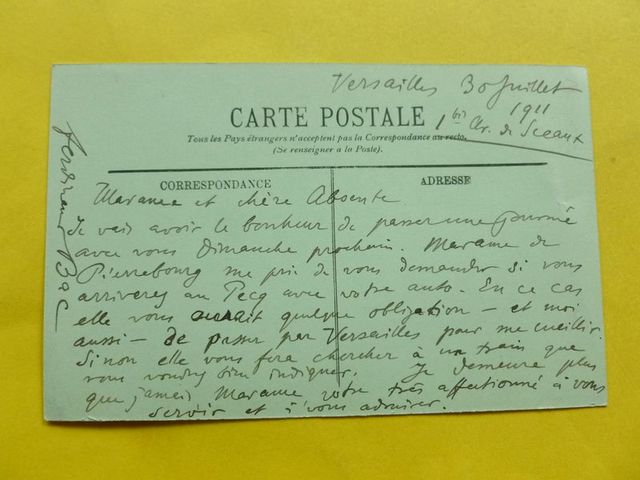 Versailles 30 Juillet
1911
CARTE POSTALE
1 bis Av. de Sceaux
Tous les Pays étrangers n'acceptent pas la Correspondance au recto.
(Se renseigner a la Poste).
CORRESPONDANCE
ADRESSE
Madame et chère Absente
Je vais avoir le bonheur de passer une journée
avec vous Dimanche prochain. Madame de
Pierrebourg me prie de vous demander si vous
arriverez au Pecq avec votre auto. En ce cas
elle vous aurait quelque obligation – et moi
aussi – de passer par Versailles pour me cueillir.
Si non elle vous fera chercher à un train que
vous voudrez bien indiquer. Je demeure plus
que jamais Madame votre très affectionné à vous
servir et à vous admirer.
Ferdinand Bac